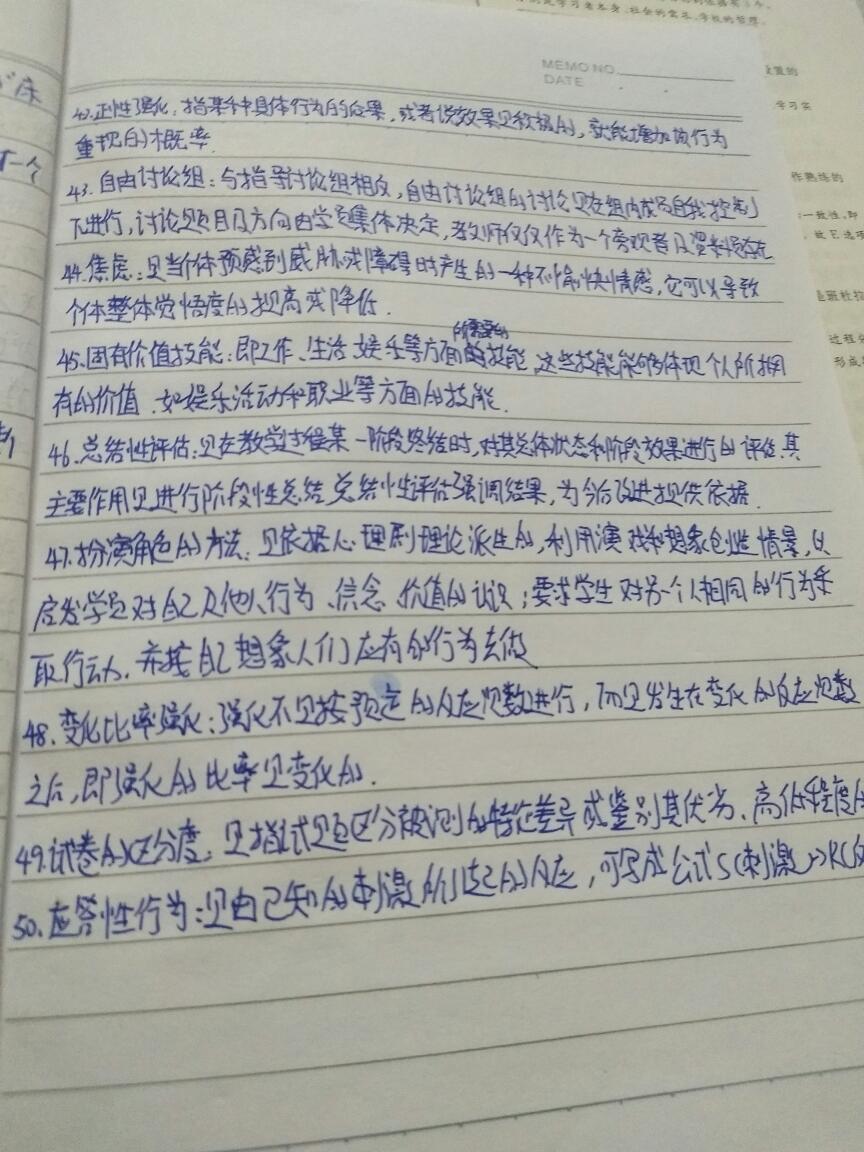 MEMO NO.
DATE
42.正性强化:指某种具体行为的后果,或者说效果是积极的,就能增加该行为
重现的概率.
43.自由讨论组:与指导讨论组相反,自由讨论组的讨论是在组内成员自我控制
下进行,讨论题目及方向由学员集体决定,教师仅仅作为一个旁观者及资料提供
44.焦虑:是当个体预感到威胁或障碍时产生的一种不愉快情感,它可以导致
个体整体觉悟度的提高或降低.
45.固有价值技能:即工作、生活、娱乐等方面所需要的技能,这些技能能够体现个人所拥
有的价值.如娱乐活动和职业等方面的技能.
46.总结性评估:是在教学过程某一阶段终结时,对其总体状态和阶段效果进行的评估.其
主要作用是进行阶段性总结.总结性评估强调结果,为今后改进提供依据.
47.扮演角色的方法:是依据心理剧理论派生的,利用演戏和想象创造情景,以
启发学员对自己及他人行为、信念、价值的认识;要求学生对另一个人相同的行为采
取行动.并按自己想象人们应有的行为去做
48.变化比率强化:强化不是按预定的反应次数进行,而是发生在变化的反应次数
之后,即强化的比率是变化的.
49.试卷的区分度:是指试题区分被测的特征差异或鉴别其优劣、高低程度的
50.应答性行为:是由已知的刺激所引起的反应,可写成公式S(刺激)→R(反
学习者本身、社会的需求、学校的哲理.
设置的
学习实
作熟练的
一致性,即
过程
形成